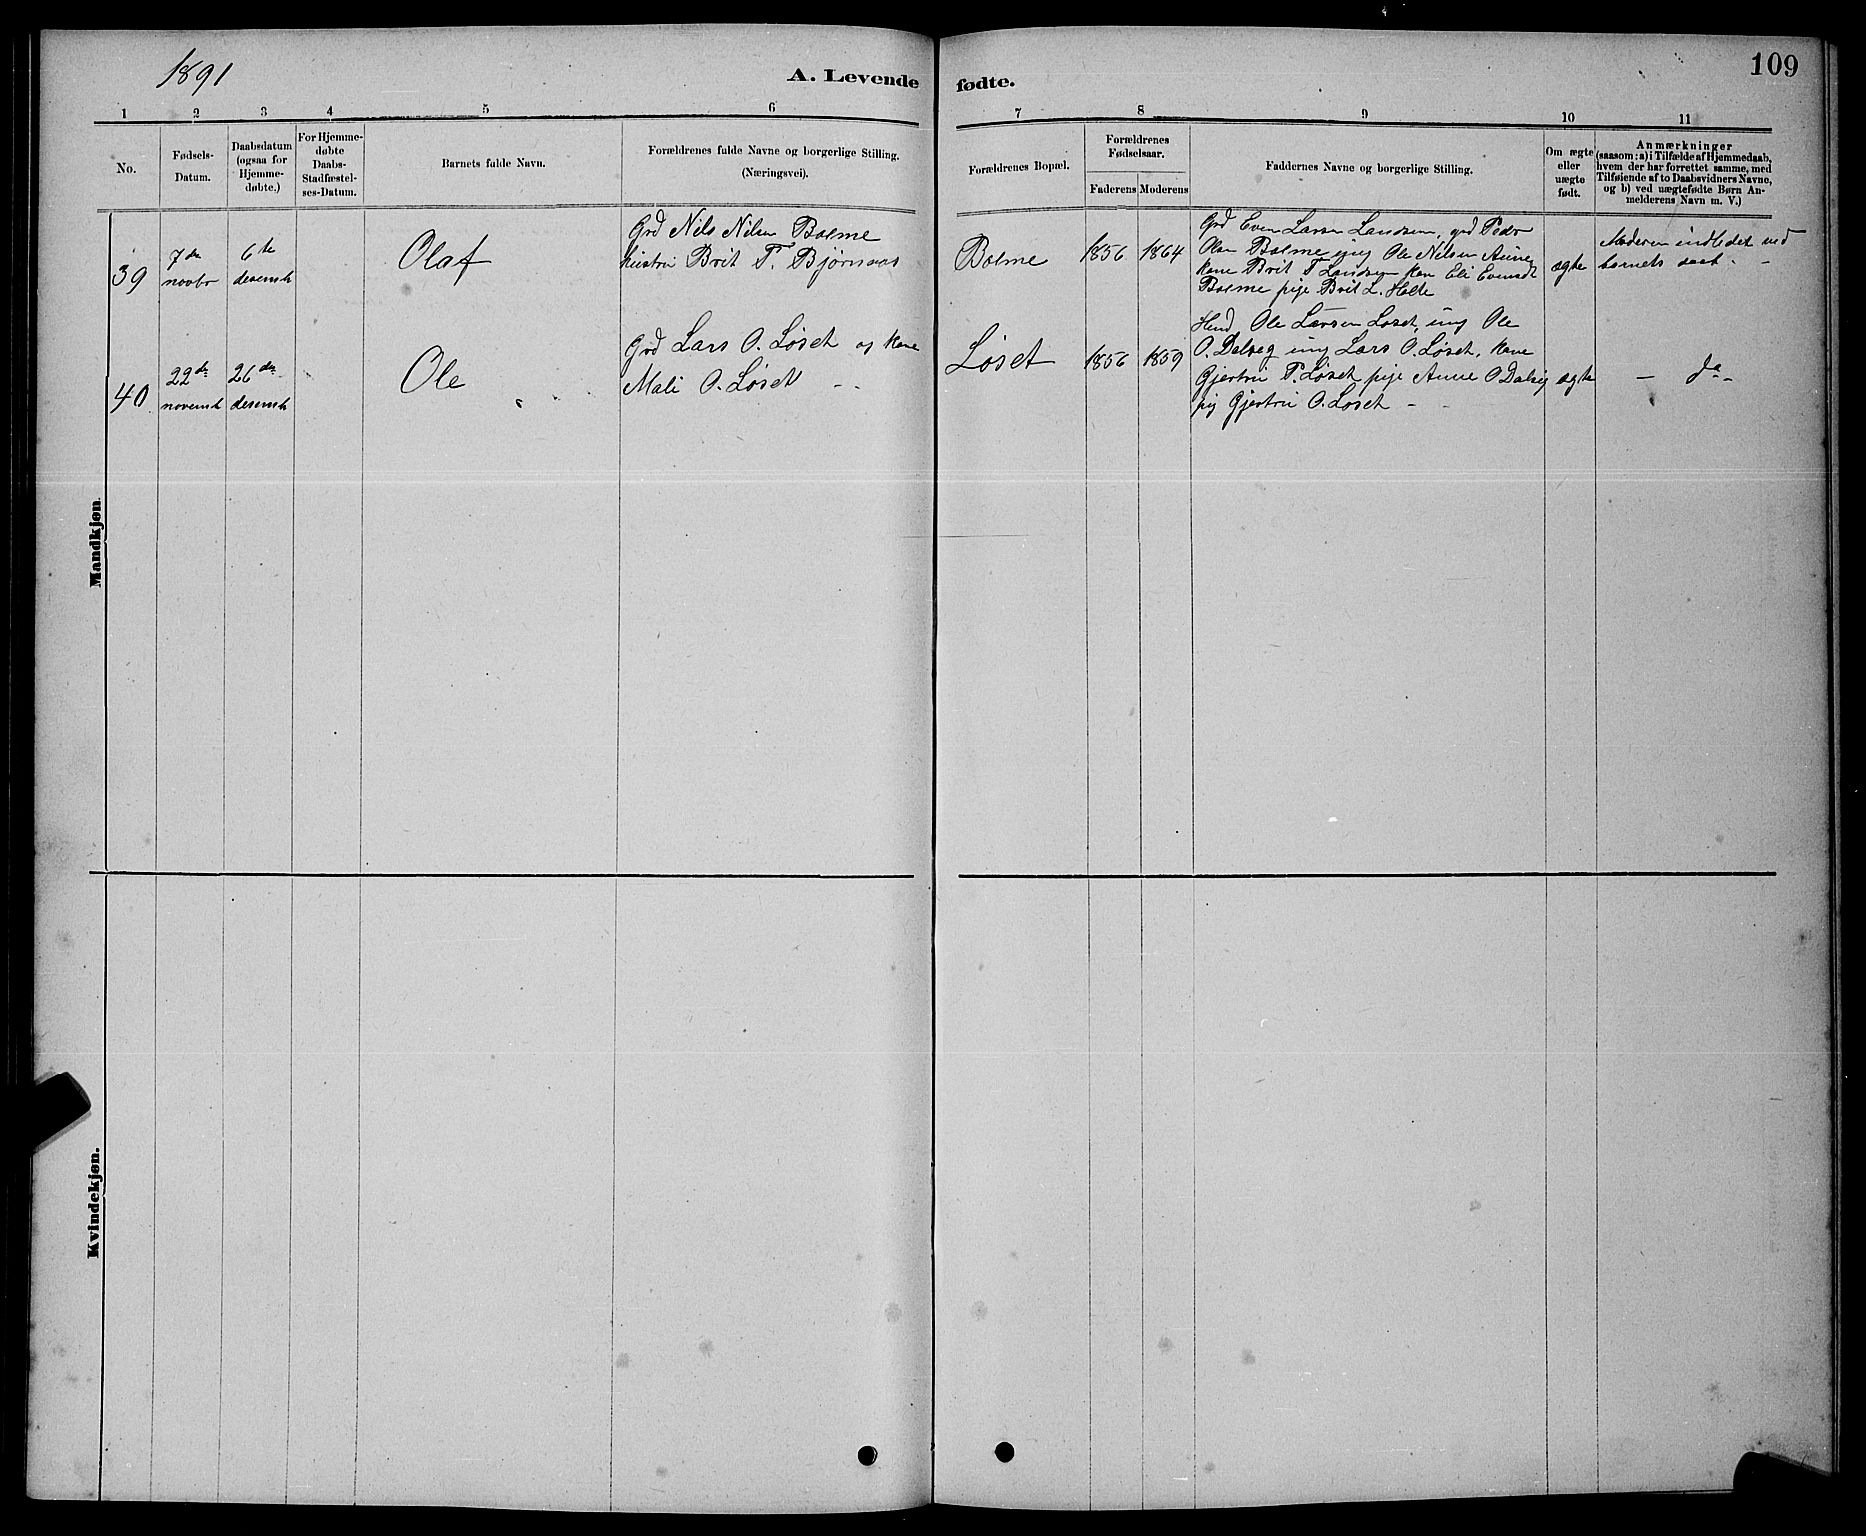 1891
A. Levende fødte.
109
1 2 3 4 5 6 7 8 9 10 11
No.
Fødsels-
Datum.
Daabsdatum
(ogsaa for
Hjemme-
døbte.)
For Hjemme-
døbte
Daabs-
Stadfæstel-
ses-Datum.
Barnets fulde Navn.
Forældrenes fulde Navne og borgerlige Stilling.
(Næringsvei).
Forældrenes Bopæl.
Forældrenes
Fødselsaar.
Faderens Moderens
Faddernes Navne og borgerlige Stilling.
Om ægte
eller
uægte
født.
Anmærkninger
(saasom: a) i Tilfælde af Hjemmedaab,
hvem der har forrettet samme, med
Tilføiende af to Daabsvidners Navne,
og b) ved uægtefødte Børn An-
melderens Navn m. V.)
Mandkjøn.
39
7de
novbr
6te
desemb
Olaf
Grd Nils Nilsen Bolme
hustru Brit T. Bjørnaas
Bolme
1856 1864
Grd Even Larsen Landsem, grd Peder
Olsen Bolme ung Ole Nilsen Aune,
kone Brit T Landsem kone Eli Evensdt
Bolme pige Brit L. Holte
ægte
Moderen indledet ved
barnets daab. -
40
22de
novemb
26de
desemb
Ole
Grd Lars O. Løset og kone
Mali O. Løset - -
Løset
1856 1859
Ole Larsen Løset, ung Ole
O. Dalseg ung Lars O. Løset, kone
Gjertru T. Løset pige Anne O Dalseg
pig Gjertru O. Løset - -
ægte
- do -
Kvindekjøn.